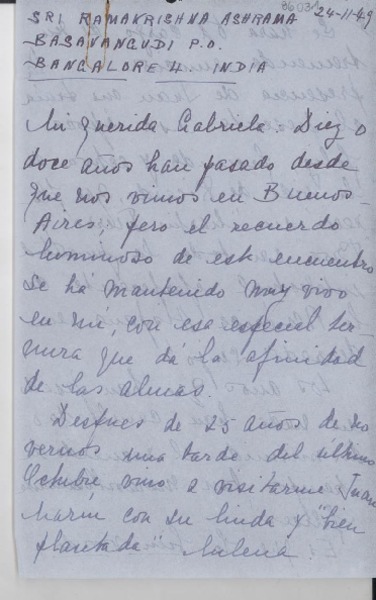 86034
SRI RAMAKRISHNA ASHRAMA 24-11-49
BASAVANGUDI P.O.
BANGALORE 4. INDIA
Mi querida Gabriela: Diez o
doce años han pasado desde
que nos vimos en Buenos
Aires, pero el recuerdo
luminoso de este encuentro
se há mantenido muy vivo
en mi, con esa especial ter-
nura que dá la afinidad
de las almas.
Despues de 25 años de no
vernos una tarde del último
Octubre vino a visitarme Juan
Marín con su linda y "bien
plantada" Milena.